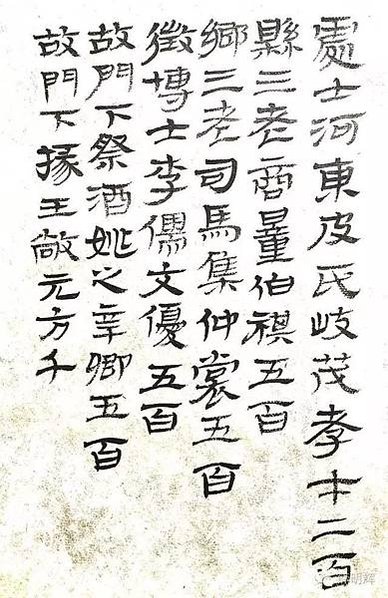 處士河東皮氏岐茂孝才二百
縣三老商量伯祺五百
鄉三老司馬集仲裳五百
徵博士李儒文優五百
故門下祭酒姚之辛卿五百
故門下掾王敞元方千
明輝